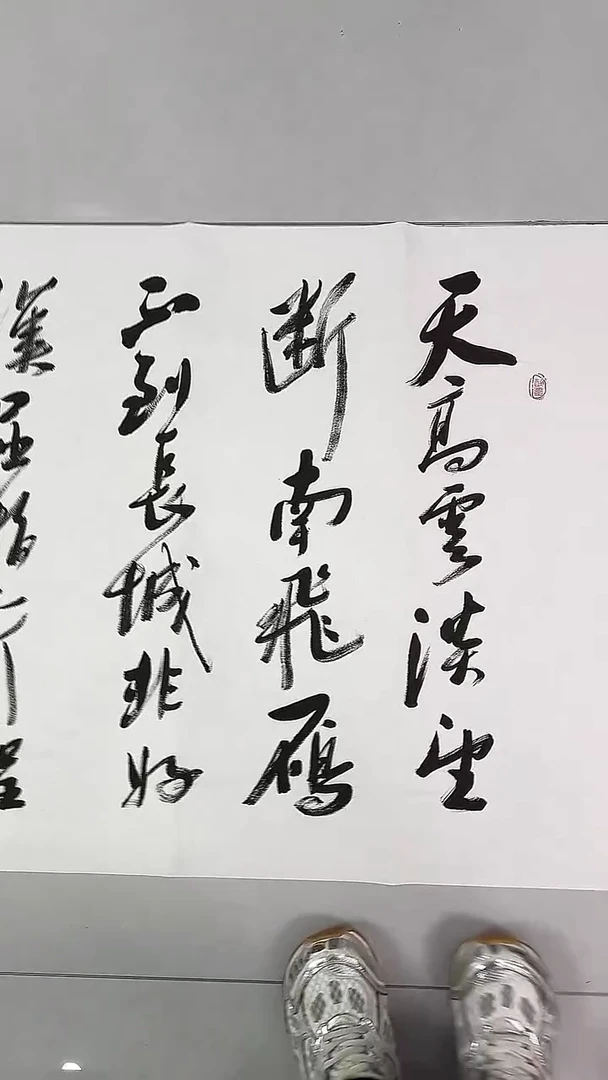 天高雲淡望
断南飛鴈
不到長城非好
漢屈指行程